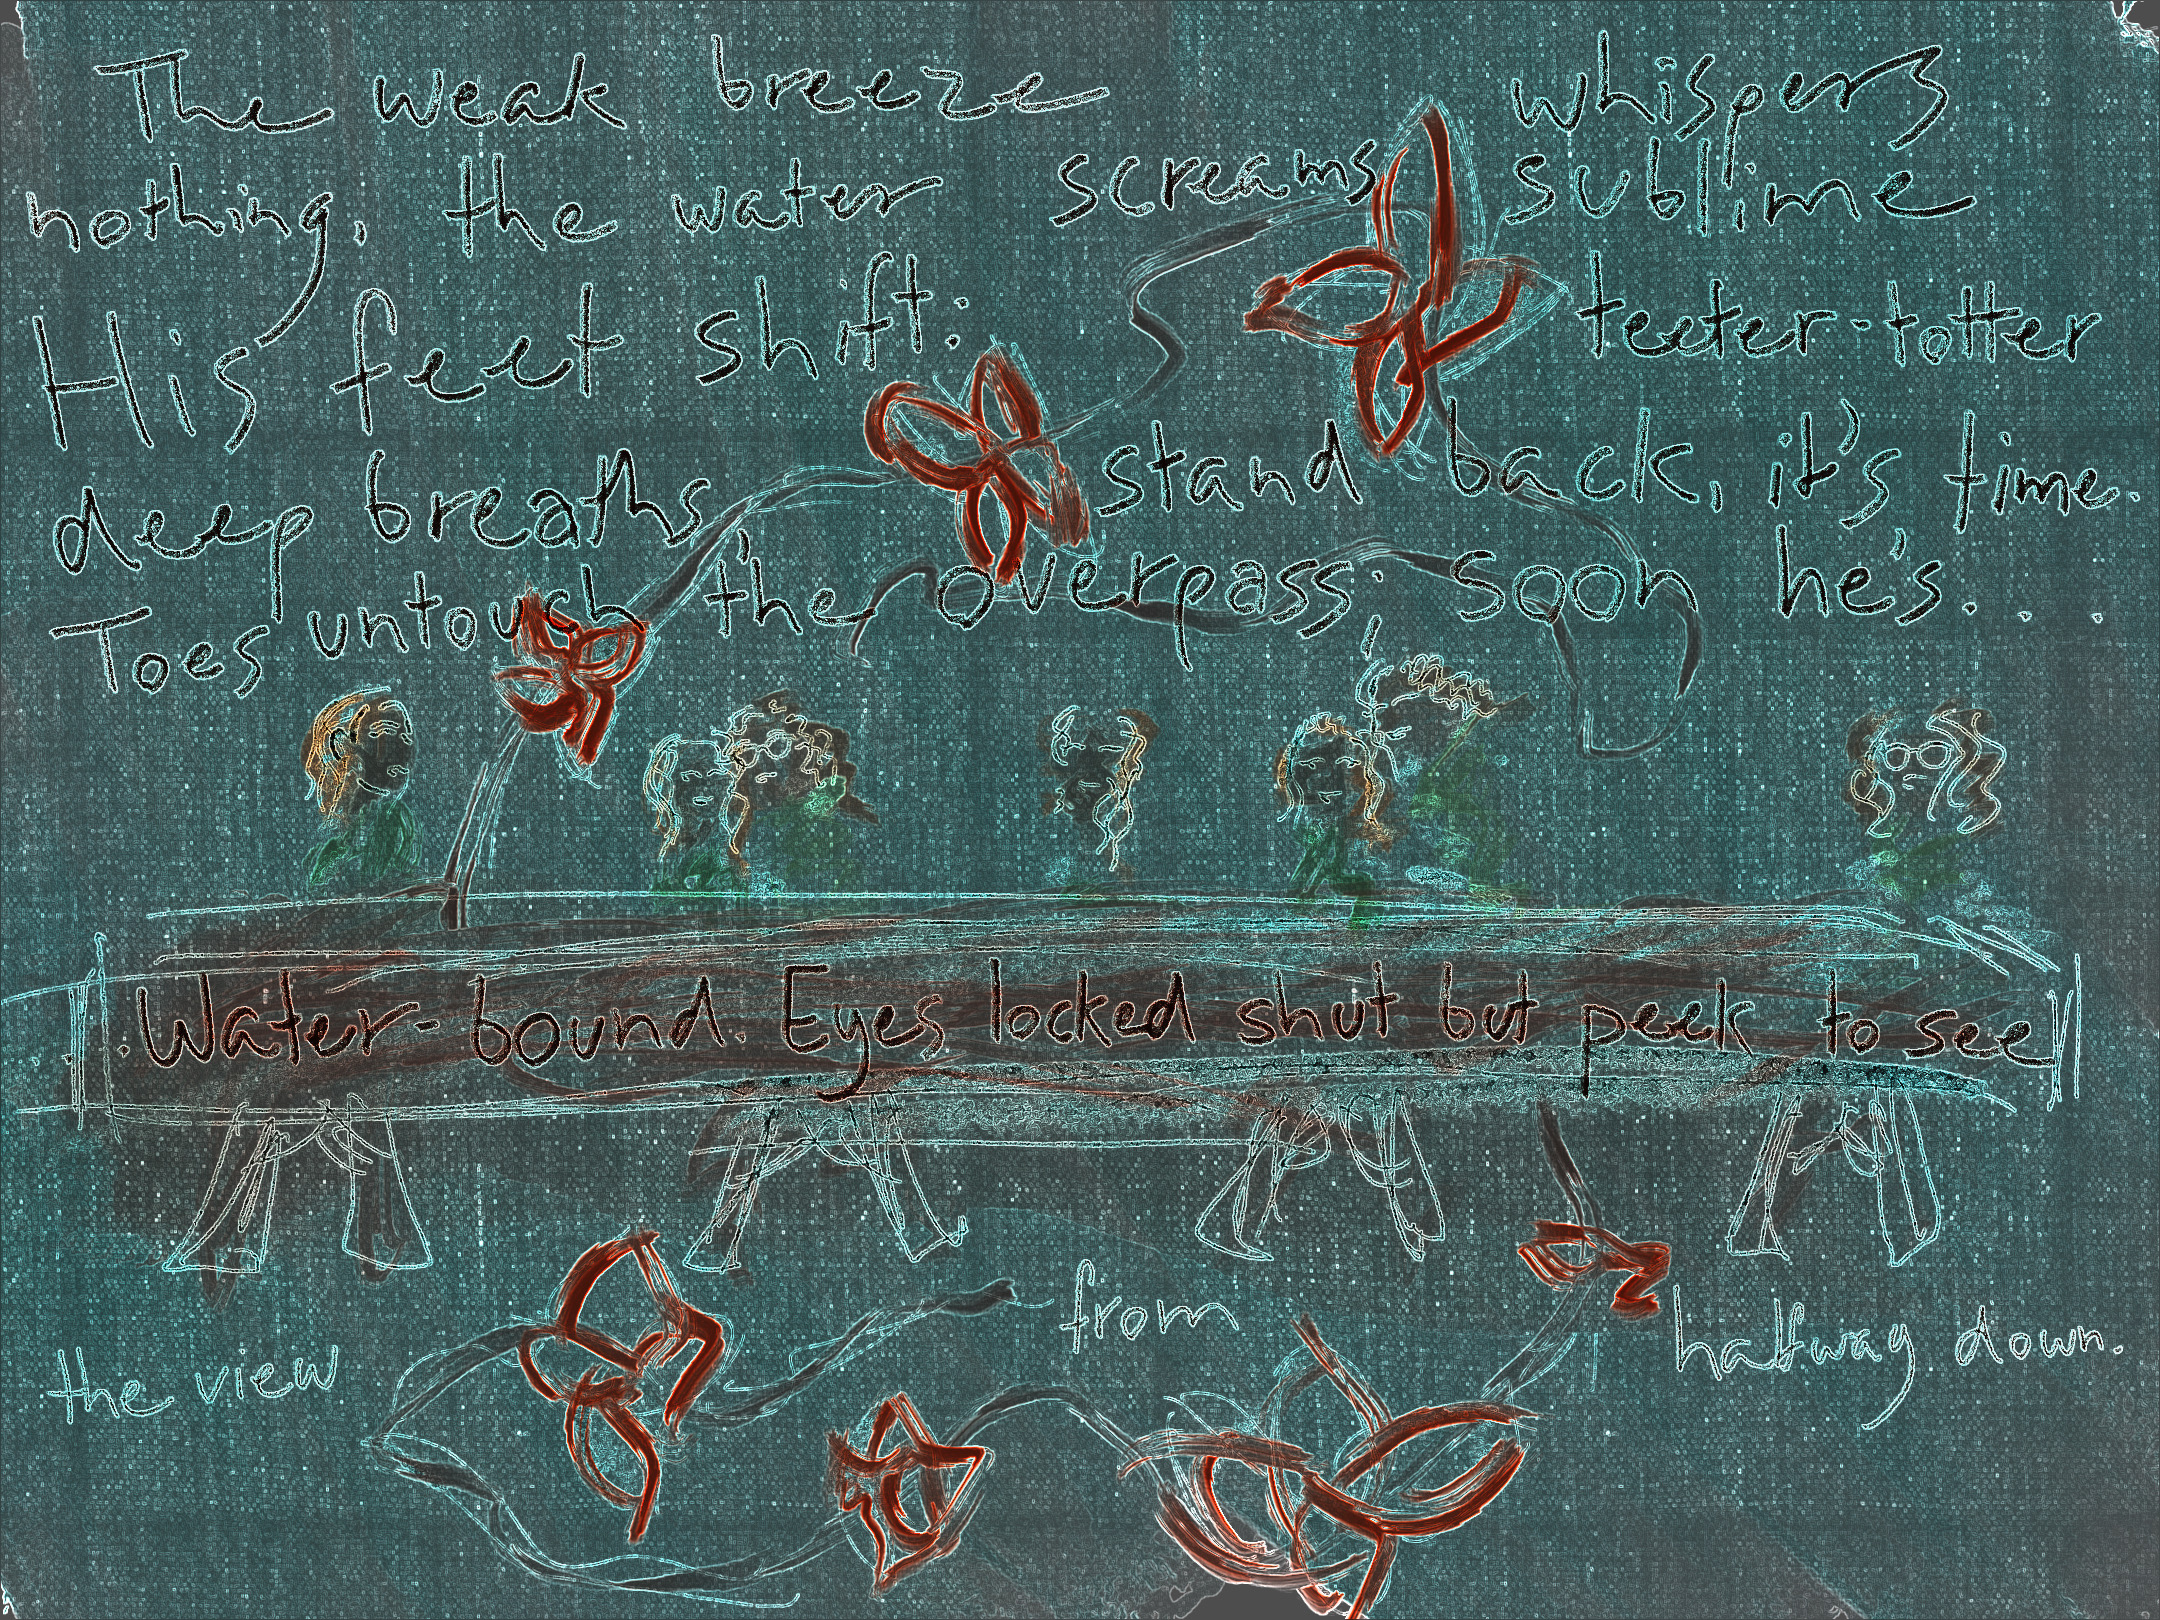 The weak breeze whispers
nothing, the water screams sublime
His feet shift: teeter-totter
deep breaths, stand back, it's time.
Toes untouch the overpass; soon he's...
Water-bound. Eyes locked shut but peek to see
the view from halfway down.